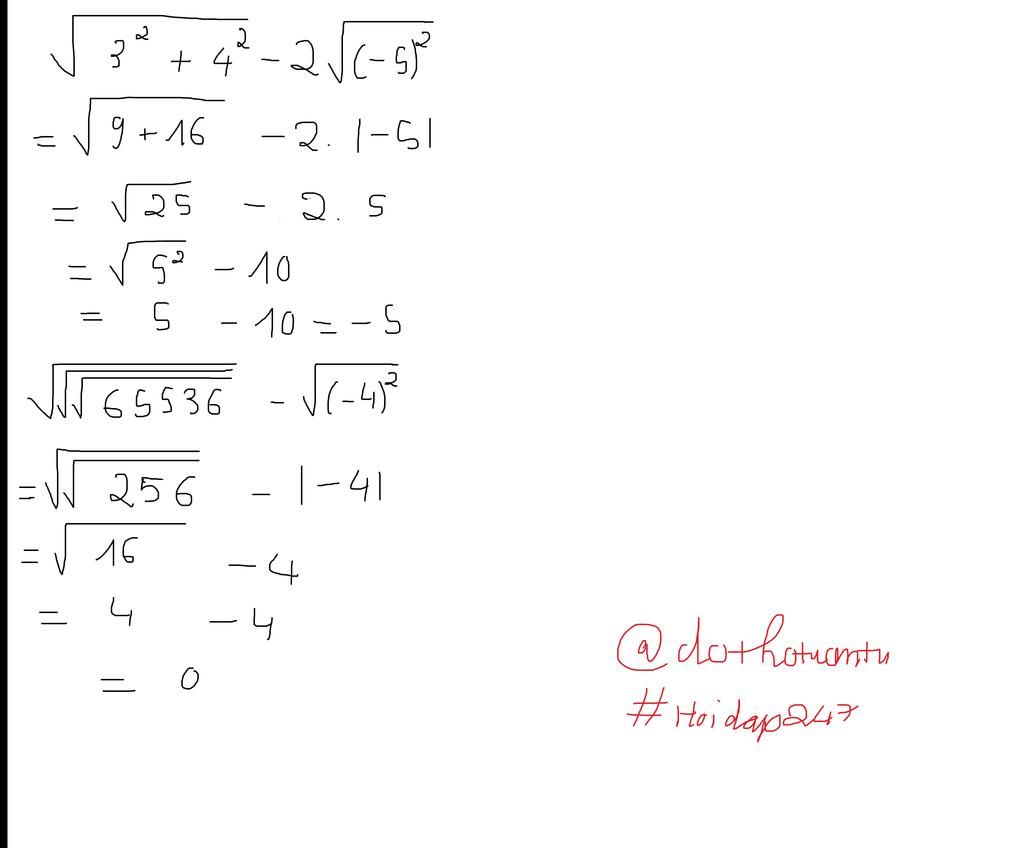 √(3² + 4²) - 2√(-5)²
= √(9 + 16) - 2. |-5|
= √25 - 2. 5
= √5² - 10
= 5 - 10 = - 5
√√√65536 - √(-4)²
= √√256 - |-4|
= √16 - 4
= 4 - 4
= 0
#Hoidap247